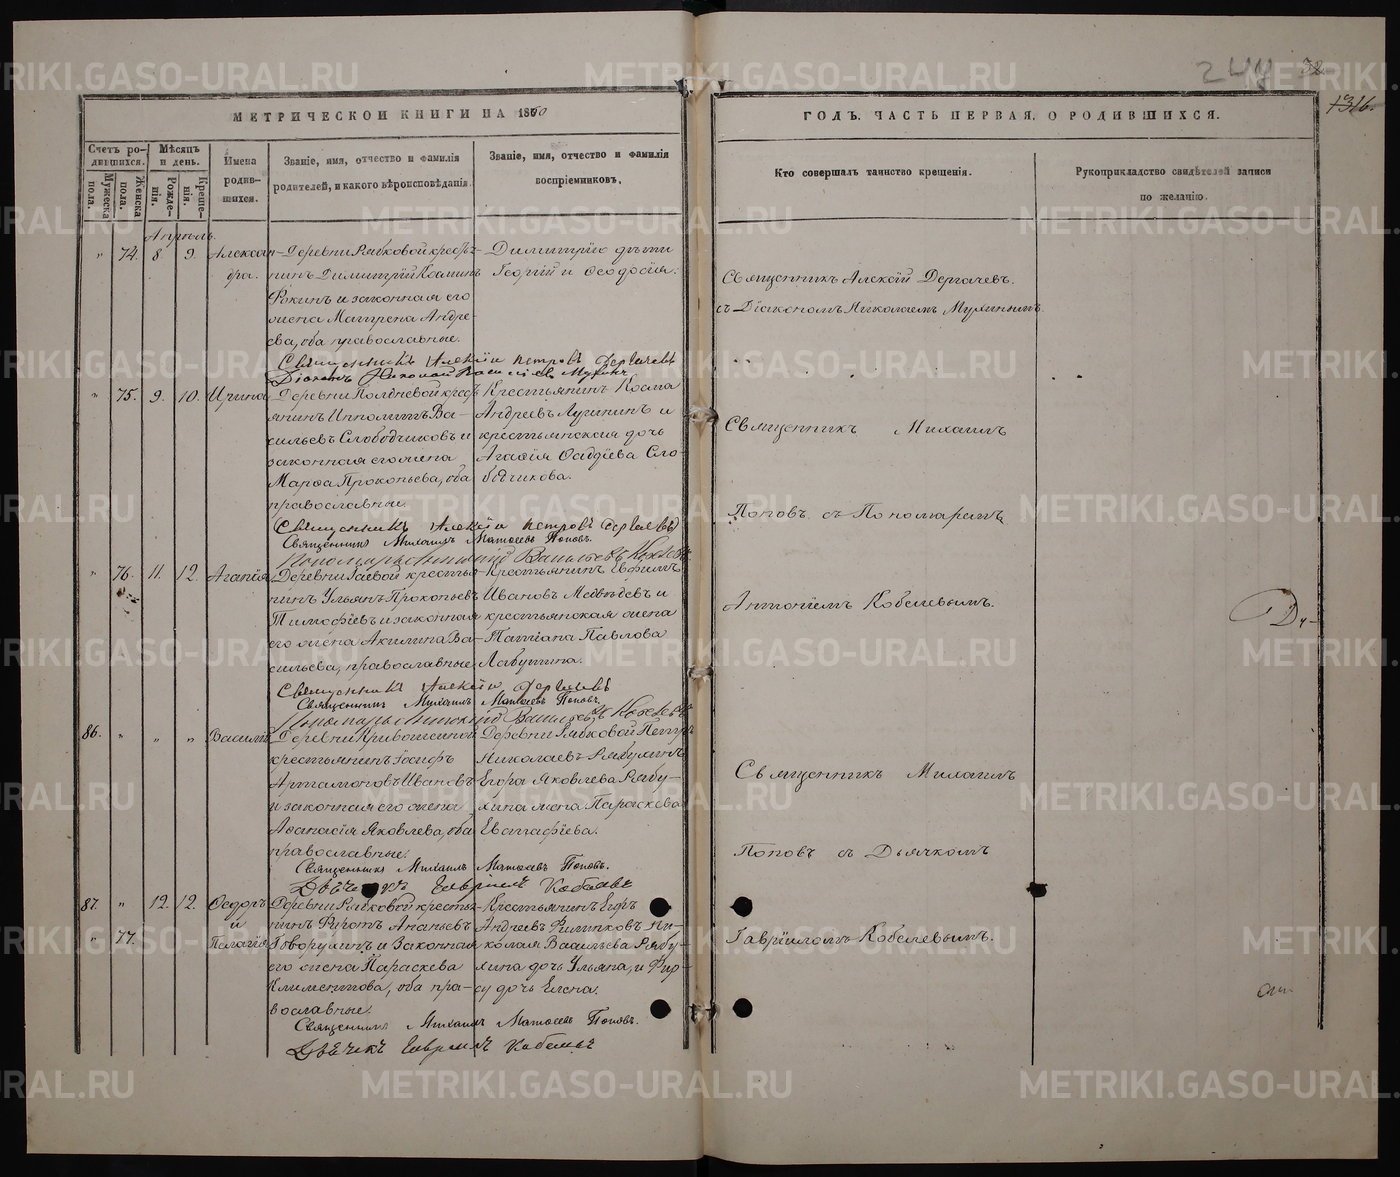 244
32
136.
МЕТРИЧЕСКОЙ КНИГИ НА 1860
ГОДЪ. ЧАСТЬ ПЕРВАЯ. О РОДИВШИХСЯ.
Счетъ родившихся.
Мужеска пола.
Женска пола.
Мѣсяцъ и день.
Рожденія.
Крещенія.
Имена родившихся.
Званіе, имя, отчество и фамилія
родителей, и какого вѣроисповѣданія.
Званіе, имя, отчество и фамилія
воспріемниковъ.
Кто совершалъ таинство крещенія.
Рукоприкладство свидѣтелей записи
по желанію.
Апрѣль.
" 74. 8. 9. Александра.
Деревни Рябковой крестьянинъ
Димитрій
Фокинъ и законная его
жена Матрена Андреева, оба православные.
Димитрію дѣти
Георгій и Ѳеодосія.
Священникъ Алексій Дергачевъ.
съ Діакономъ Николаемъ Мухинымъ
Священникъ Алексій Петровъ Дергачевъ
Діаконъ Николай Васильевъ Мухинъ
" 75. 9. 10. Ирина
Деревни Полдневой крестьянинъ
Ипполитъ Васильевъ
Слободчиковъ и
законная его жена
Марѳа Прокопьева, оба
православные.
Крестьянинъ Козма
Андреевъ и
крестьянская дочь
Агаѳія Ѳаддѣева Слободчикова.
Священникъ Михаилъ
Поповъ съ Пономаремъ
Антоніемъ Кобелевымъ.
Священникъ Алексій Петровъ Дергачевъ
Священникъ Михаилъ Матѳеевъ Поповъ.
Пономарь Антоній Васильевъ Кобелевъ
" 76. 11. 12. Агапія
Деревни Гаевой крестьянинъ
Ульянъ Прокопьевъ
Тимофѣевъ и законная
его жена Акилина Васильева, православные
Крестьянинъ Евфимъ
Ивановъ Медвѣдевъ и
крестьянская жена
Татіана Павлова
Лабутина.
Священникъ Алексій Дергачевъ
Священникъ Михаилъ Матѳеевъ Поповъ.
Пономарь Антоній Васильевъ Кобелевъ
86. " " " Василій
Деревни
крестьянинъ Іосифъ
Артамоновъ Ивановъ
и законная его жена
Аѳанасія Яковлева, оба
православные.
Деревни Рябковой Петръ
Николаевъ Рябухинъ
Егора Яковлева Рябухина
жена Параскева
Евстафіева.
Священникъ Михаилъ
Поповъ съ Дьячкомъ
Гавріиломъ Кобелевымъ.
Священникъ Михаилъ Матѳеевъ Поповъ.
Дьячекъ Гавріилъ Кобелевъ
87. " 12. 12. Ѳедоръ
и
" 77. Пелагія
Деревни Рябковой крестьянинъ
Ананьевъ
Говорухинъ и законная
его жена Параскева
Климентова, оба православные.
Крестьянинъ Егоръ
Андреевъ Филипковъ
Васильева
дочь Ульяна, и
дочь Елена.
Священникъ Михаилъ Матѳеевъ Поповъ.
Дьячекъ Гавріилъ Кобелевъ
METRIKI.GASO-URAL.RU